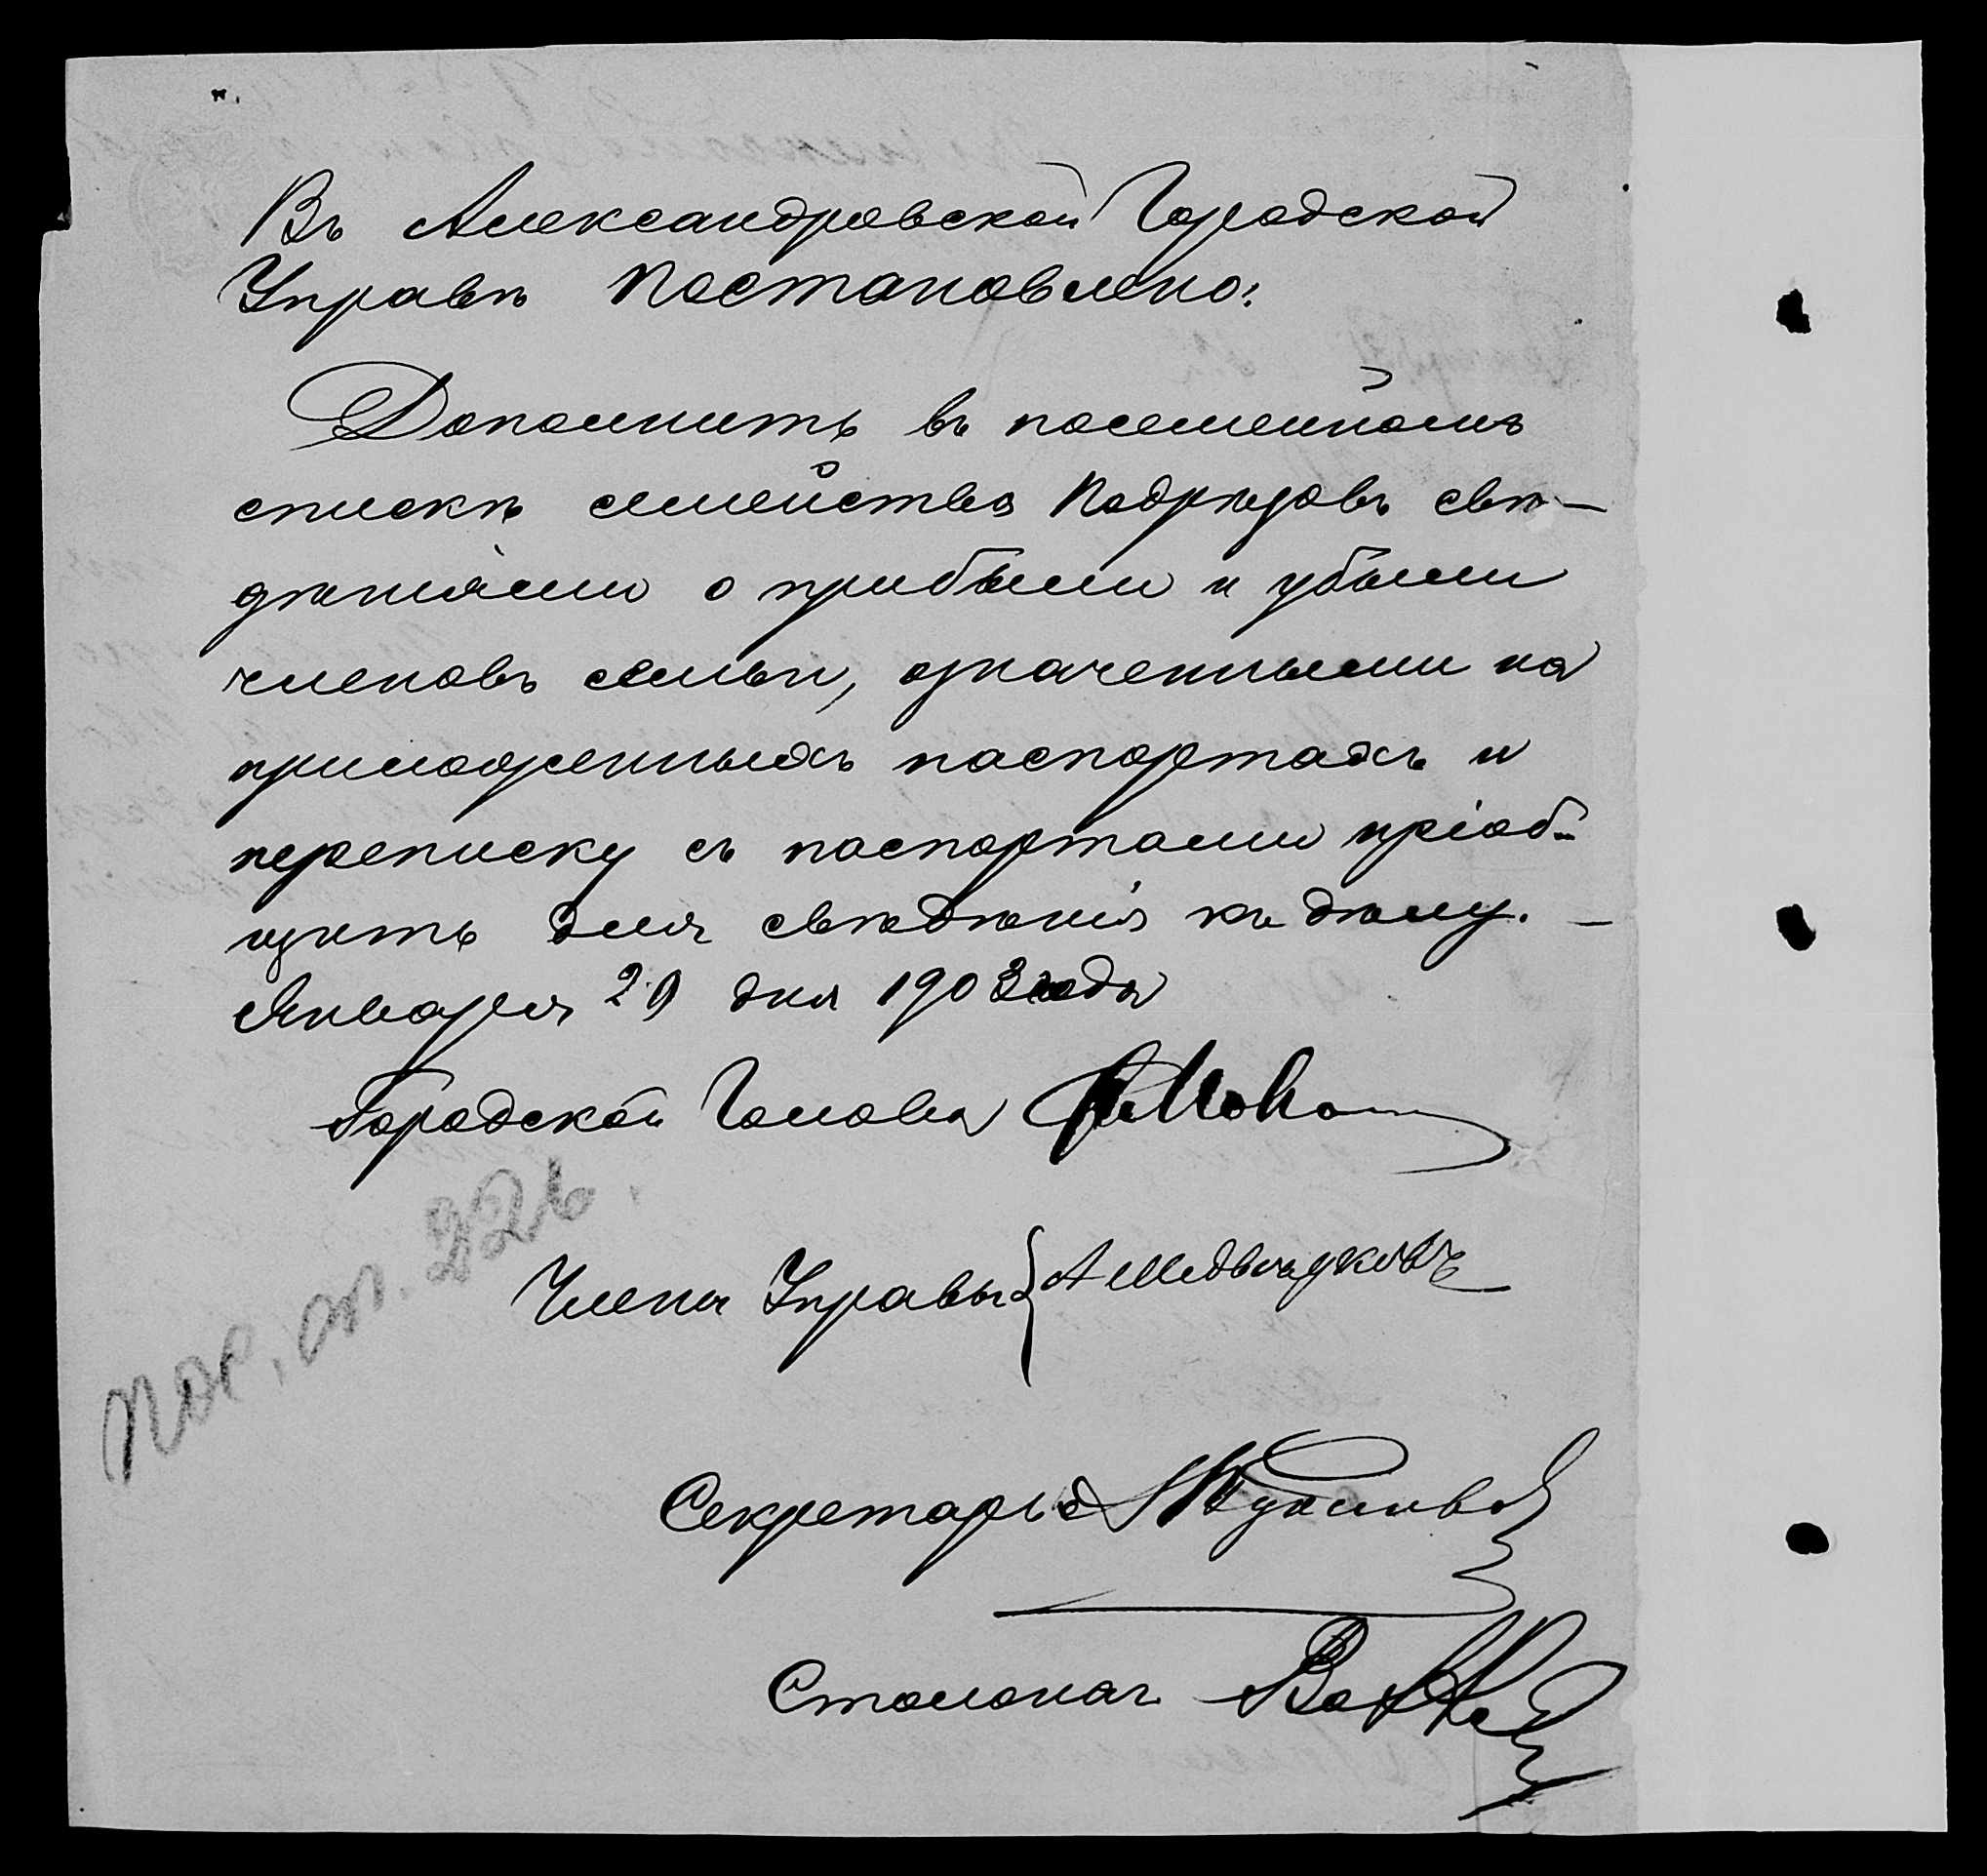 Въ Александровской Городской
Управѣ постановлено:
Дополнить въ посемейномъ
спискѣ семейства Подрѣзовъ свѣ-
дѣніями о прибыли и убыли
членовъ семьи, означенными на
приложенныхъ паспортахъ и
переписку съ паспортами пріоб-
щить для свѣдѣнія къ дѣлу. —
Января 29 дня 1903 года
Городской Голова
Члены Управы { А Медвѣдковъ
Секретарь
Столонач.
пос. сп. 226.